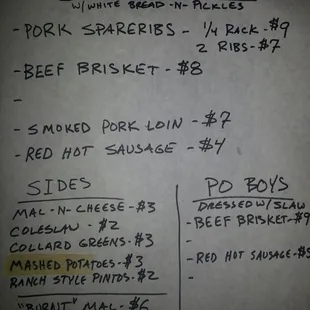 w/ WHITE BREAD -N- PICKLES
- PORK SPARERIBS - 1/4 RACK - $9
2 RIBS - $7
- BEEF BRISKET - $8
-
- SMOKED PORK LOIN - $7
- RED HOT SAUSAGE - $4
SIDES
MAC -N- CHEESE - $3
COLESLAW - $2
COLLARD GREENS - $3
MASHED POTATOES - $3
RANCH STYLE PINTOS - $2
"BURNT" MAC - $6
PO BOYS
DRESSED W/ SLAW
- BEEF BRISKET - $9
-
- RED HOT SAUSAGE - $5
-